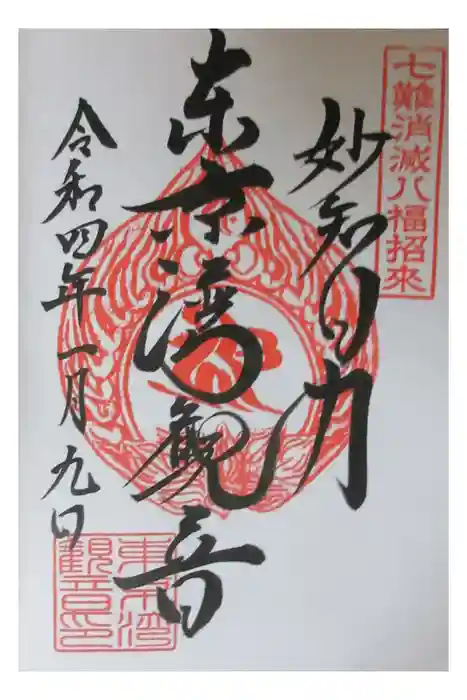 七難消滅八福招來
妙智力
東京湾観音
令和四年一月九日
東京湾
觀音印